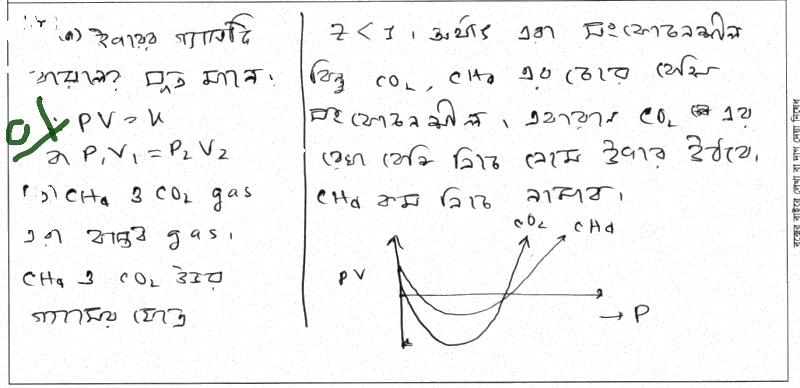 a) উপরের গ্যাসটি
বয়েলের সূত্র মানে।
PV = K
বা P₁V₁ = P₂V₂
CH₄ ও CO₂ gas
এরা বাস্তব gas।
CH₄ ও CO₂ উভয়
গ্যাসের ক্ষেত্রে
Z < 1, অর্থাৎ এরা সংকোচনশীল
কিন্তু CO₂, CH₄ এর চেয়ে বেশি
সংকোচনশীল, এখানে CO₂ এর
রেখা বেশি নিচে নেমে উপরে উঠবে,
CH₄ কম নিচে নামবে।
CO₂ CH₄
PV
→ P
বক্সের বাইরে লেখা বা দাগ দেয়া নিষেধ